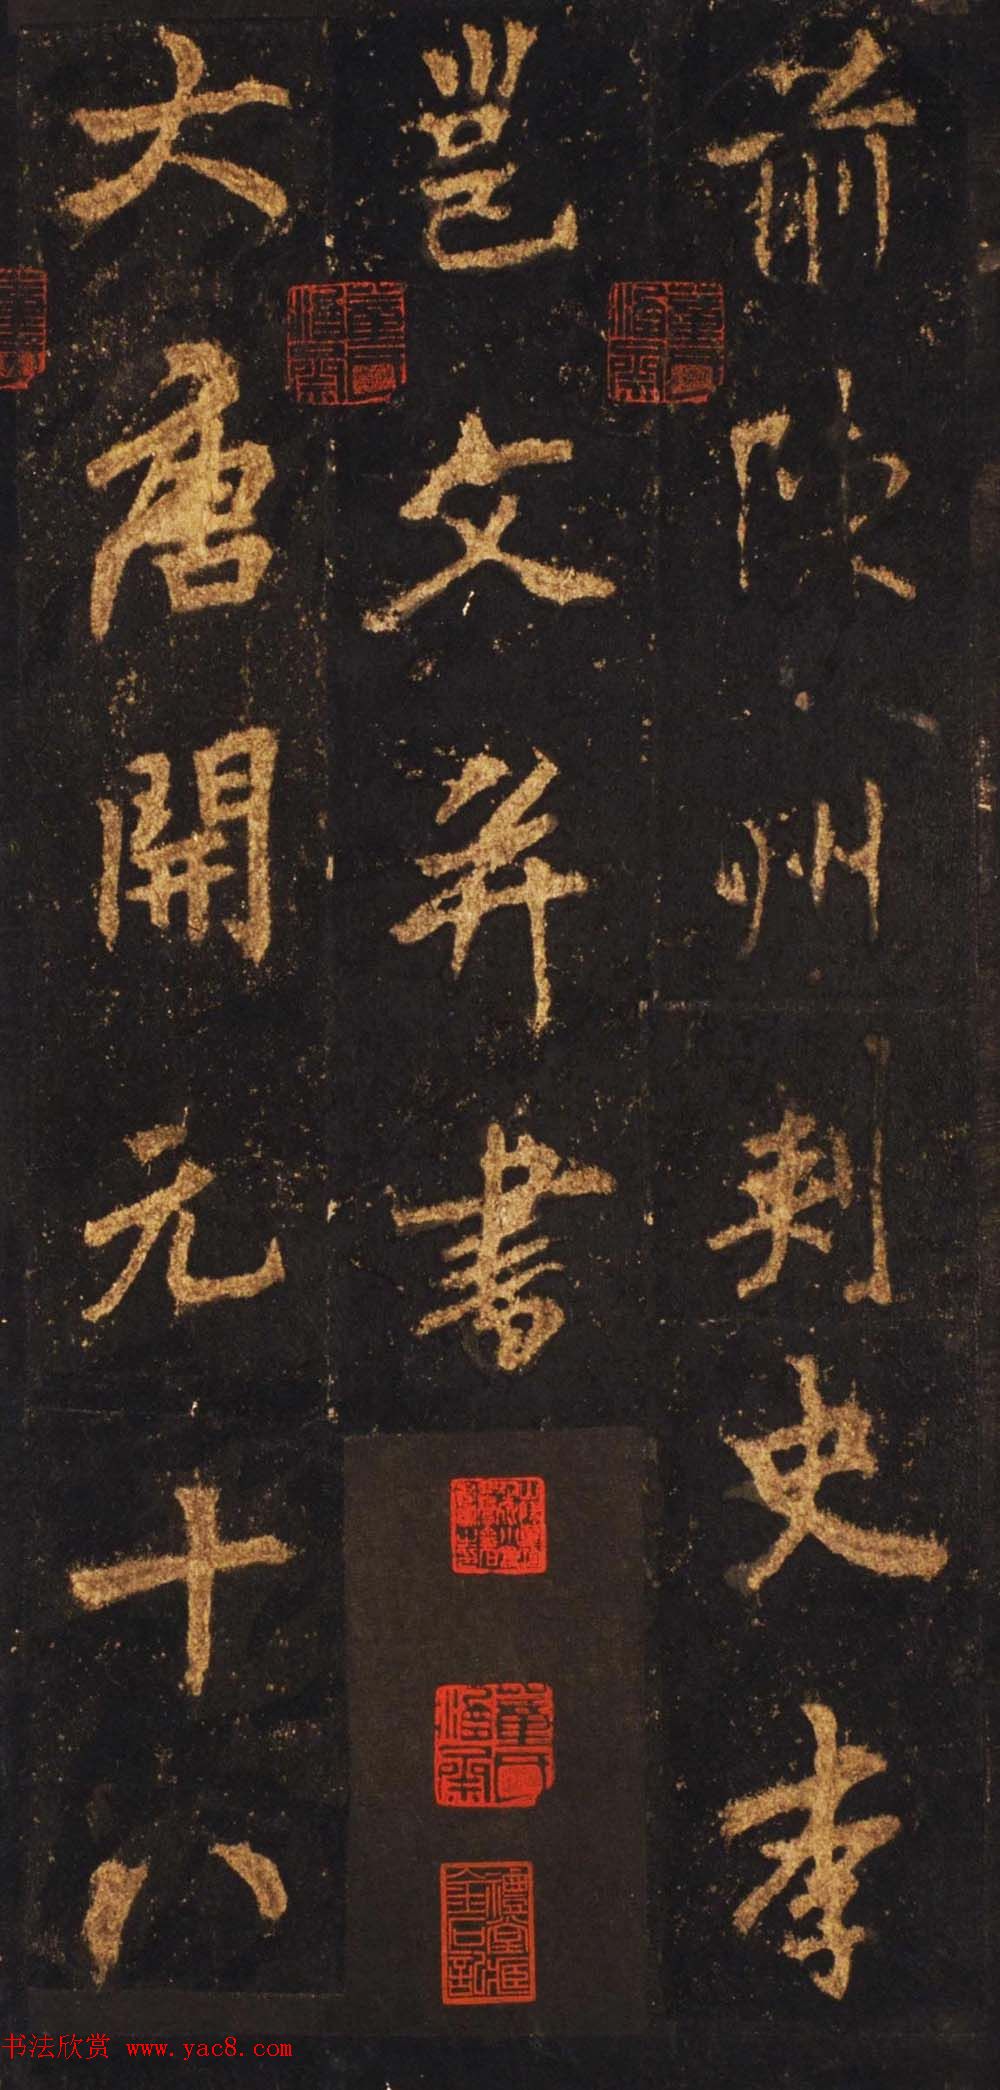 前陳州刺史李
邕文并書
大唐開元十八
书法欣赏 www.yac8.com